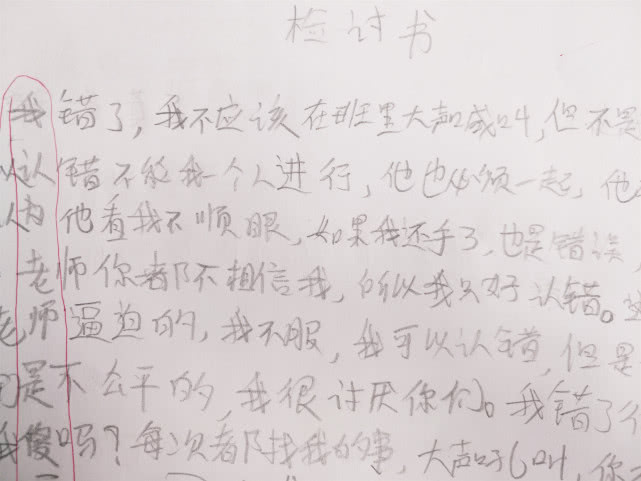 检讨书
我错了，我不应该在班里大声喊叫，但不是
以认错不能我一个人进行，他也必须一起，他
为他看我不顺眼，如果我还手了，也是错误，
老师你都不相信我，所以我只好认错。
老师逼迫的，我不服，我可以认错，但是
是不公平的，我很讨厌你们。我错了
我傻吗？每次都找我的事，大声吼叫，你